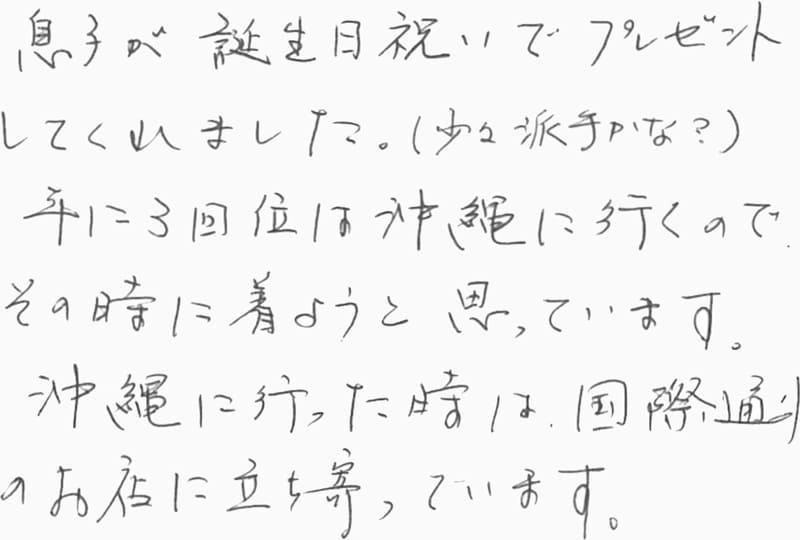 息子が誕生日祝いでプレゼント
してくれました。(少々派手かな?)
年に3回位は沖縄に行くので
その時に着ようと思っています。
沖縄に行った時は、国際通り
のお店に立ち寄っています。